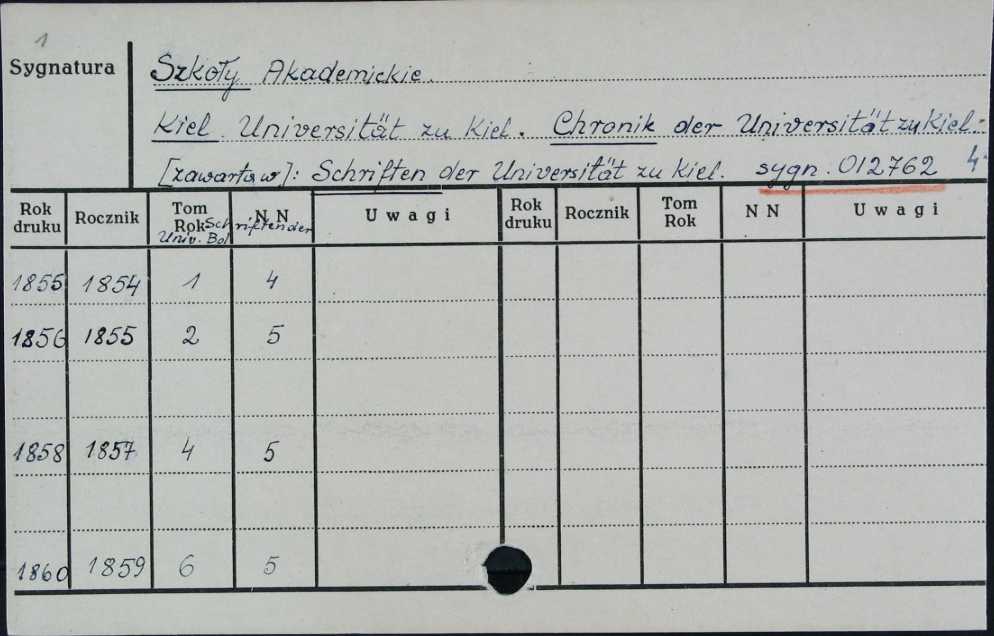 1
Sygnatura
Szkoły Akademickie.
Kiel. Universität zu Kiel. Chronik der Universität zu Kiel.
[zawarta w]: Schriften der Universität zu Kiel. sygn. 012762 4°
Rok druku Rocznik Tom Rok N N Uwagi Rok druku Rocznik Tom Rok N N Uwagi
Schriften der
Univ. Bd
1855 1854 1 4
1856 1855 2 5
1858 1857 4 5
1860 1859 6 5